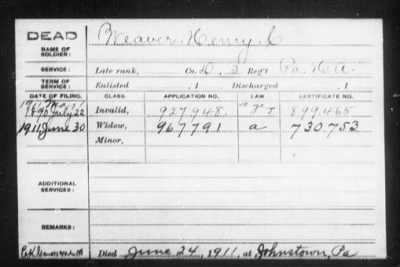 DEAD
NAME OF SOLDIER: Weaver, Henry C
SERVICE: Late rank, Co. D, 3 Reg't Pa.
TERM OF SERVICE: Enlisted , 1 Discharged , 1
DATE OF FILING. CLASS. APPLICATION NO. LAW. CERTIFICATE NO.
1890 July 22 Invalid, 927.948. 899.465
1911 June 30 Widow, 967.791 a 730.753
Minor,
ADDITIONAL SERVICES:
REMARKS:
Died June 24, 1911, at Johnstown, Pa